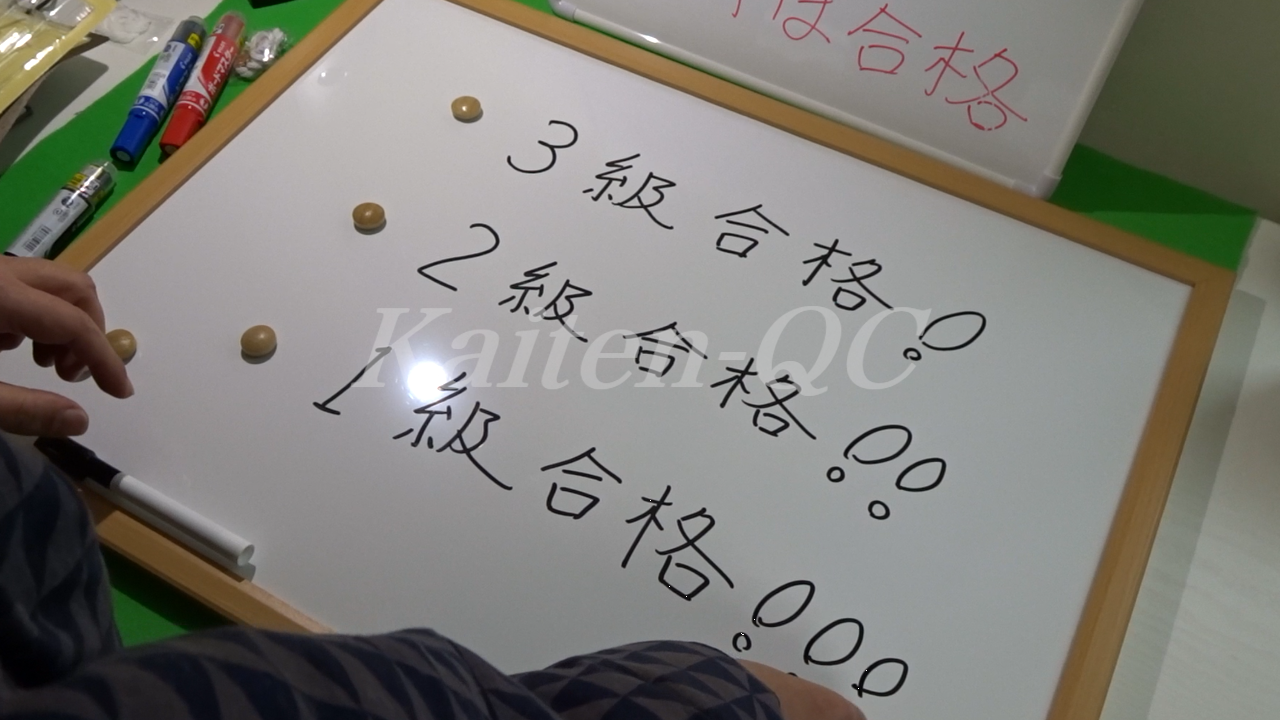 は合格
3級合格!
2級合格!!
1級合格!!!
Kaiten-QC